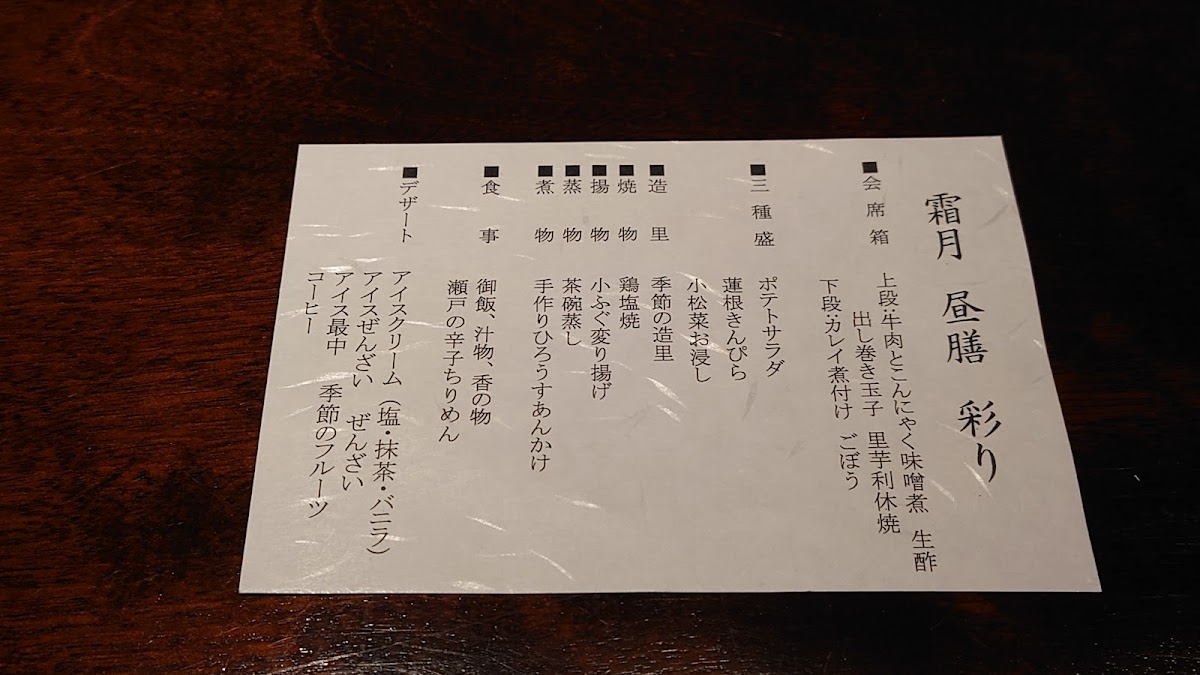 霜月 昼膳 彩り
■会席箱 上段:牛肉とこんにゃく味噌煮 生酢
出し巻き玉子 里芋利休焼
下段:カレイ煮付け ごぼう
■三種盛 ポテトサラダ
蓮根きんぴら
小松菜お浸し
■造里 季節の造里
■焼物 鶏塩焼
■揚物 小ふぐ変り揚げ
■蒸物 茶碗蒸し
■煮物 手作りひろうすあんかけ
■食事 御飯、汁物、香の物
瀬戸の辛子ちりめん
■デザート アイスクリーム（塩・抹茶・バニラ）
アイスぜんざい ぜんざい
アイス最中 季節のフルーツ
コーヒー